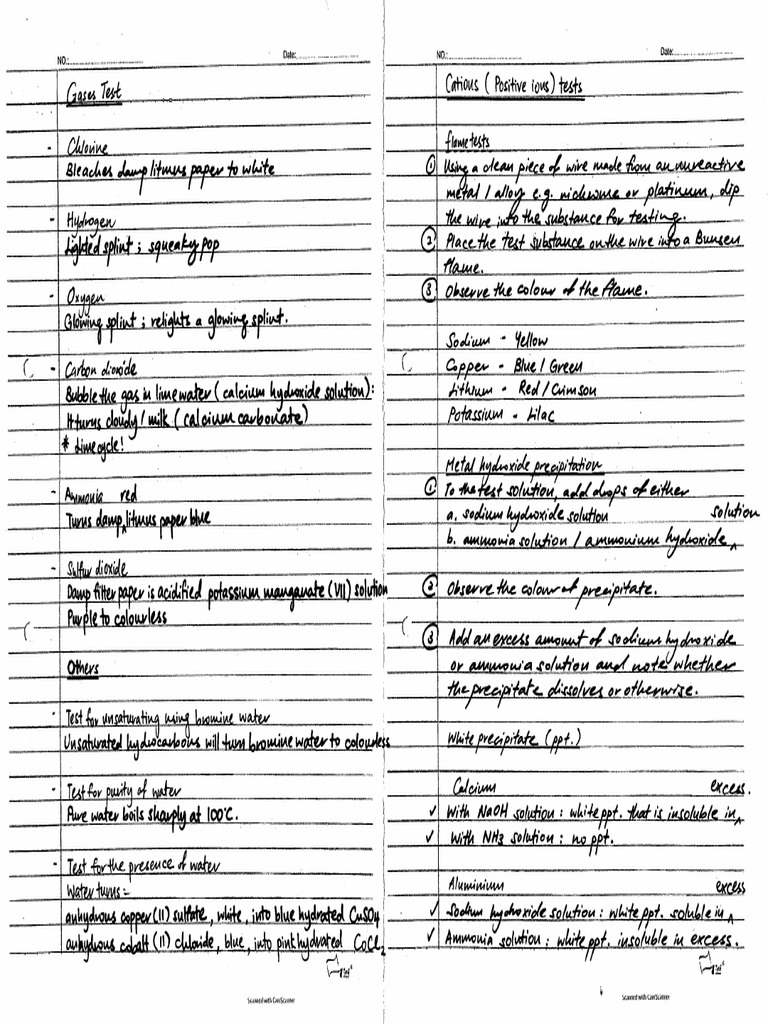 NO.: Date:
Gases Test
- Chlorine
Bleaches damp litmus paper to white
- Hydrogen
Lighted splint ; squeaky pop
- Oxygen
Glowing splint ; relights a glowing splint.
- Carbon dioxide
Bubble the gas in limewater ( calcium hydroxide solution) :
It turns cloudy / milk ( calcium carbonate)
* Lime cycle!
- Ammonia red
Turns damp ^ litmus paper blue
- Sulfur dioxide
Damp filter paper is acidified potassium manganate (VII) solution
Purple to colourless
Others
- Test for unsaturating using bromine water
Unsaturated hydrocarbons will turn bromine water to colourless
- Test for purity of water
Pure water boils sharply at 100°C.
- Test for the presence of water
Water turns -
anhydrous copper (II) sulfate, white, into blue hydrated CuSO4
anhydrous cobalt (II) chloride, blue, into pink hydrated CoCl2
Scanned with CamScanner
NO.: Date:
Cations ( Positive ions) tests
flame tests
① Using a clean piece of wire made from an unreactive
metal / alloy e.g. nichrome or platinum, dip
the wire into the substance for testing.
② Place the test substance on the wire into a Bunsen
flame.
③ Observe the colour of the flame.
Sodium - Yellow
Copper - Blue / Green
Lithium - Red / Crimson
Potassium - Lilac
Metal hydroxide precipitation
① To the test solution, add drops of either
a. sodium hydroxide solution solution
b. ammonia solution / ammonium hydroxide ^
② Observe the colour of precipitate.
③ Add an excess amount of sodium hydroxide
or ammonia solution and note whether
the precipitate dissolves or otherwise.
White precipitate (ppt.)
Calcium excess.
✓ With NaOH solution : white ppt. that is insoluble in ^
✓ With NH3 solution : no ppt.
Aluminium excess
✓ Sodium hydroxide solution : white ppt. soluble in ^
✓ Ammonia solution : white ppt. insoluble in excess.
Scanned with CamScanner